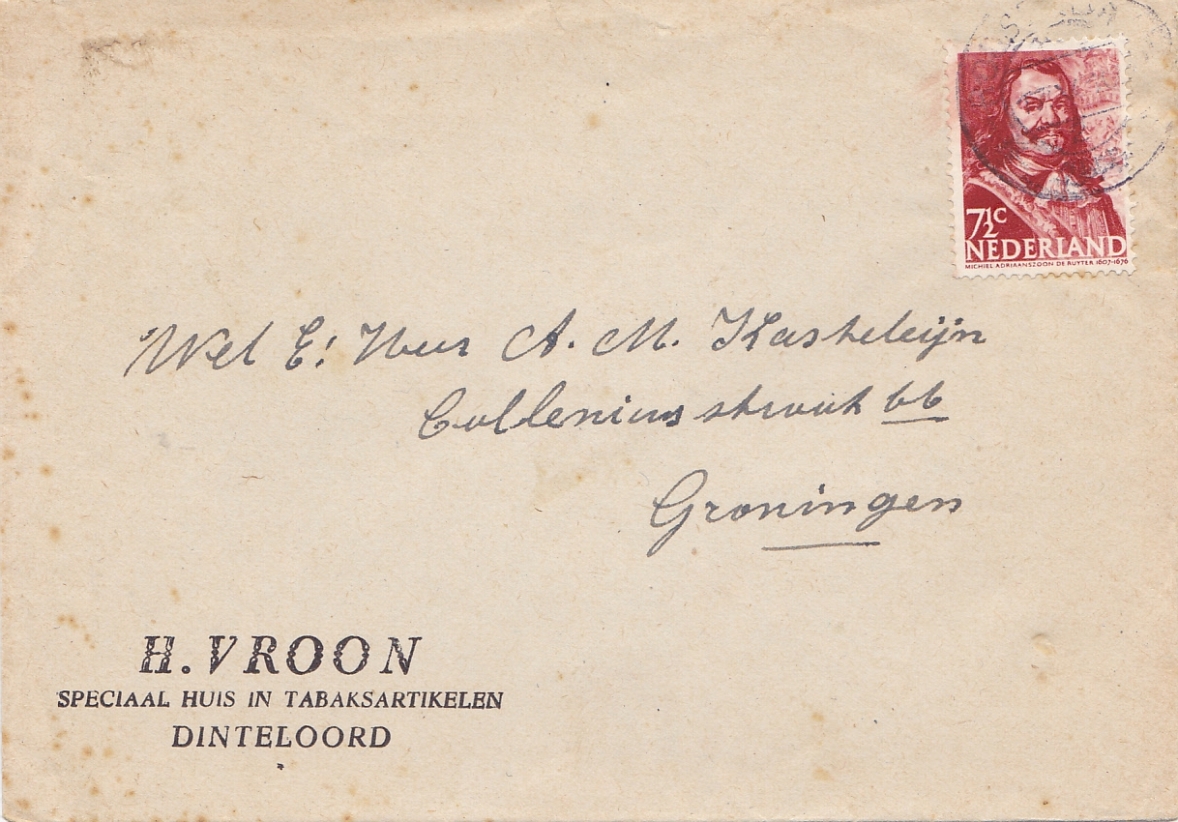 7½c
NEDERLAND
MICHIEL ADRIAANSZOON DE RUYTER 1607-1676
Wel E: Heer A. M. Kasteleijn
Colleniusstraat 66
Groningen
H. VROON
SPECIAAL HUIS IN TABAKSARTIKELEN
DINTELOORD